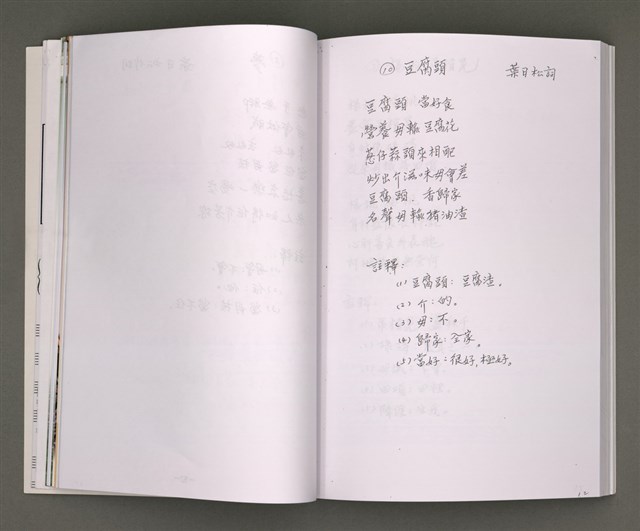 ⑩ 豆腐頭 葉日松詞
豆腐頭 當好食
營養毋輸豆腐花
蔥仔蒜頭來相配
炒出介滋味毋會差
豆腐頭、香歸家
名聲毋輸豬油渣
註釋：
(1) 豆腐頭：豆腐渣。
(2) 介：的。
(3) 毋：不。
(4) 歸家：全家。
(5) 當好：很好，極好。